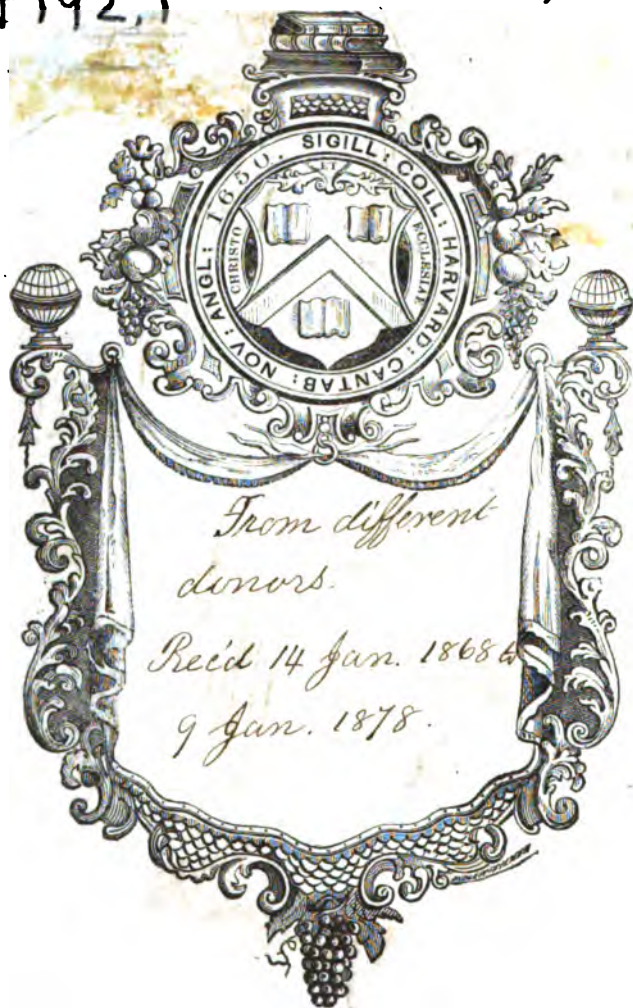 SIGILL: COLL: HARVARD: CANTAB: NOV: ANGL: 1650.
CHRISTO ET ECCLESIAE
From different
donors.
Rec'd 14 Jan. 1868 to
9 Jan. 1878.